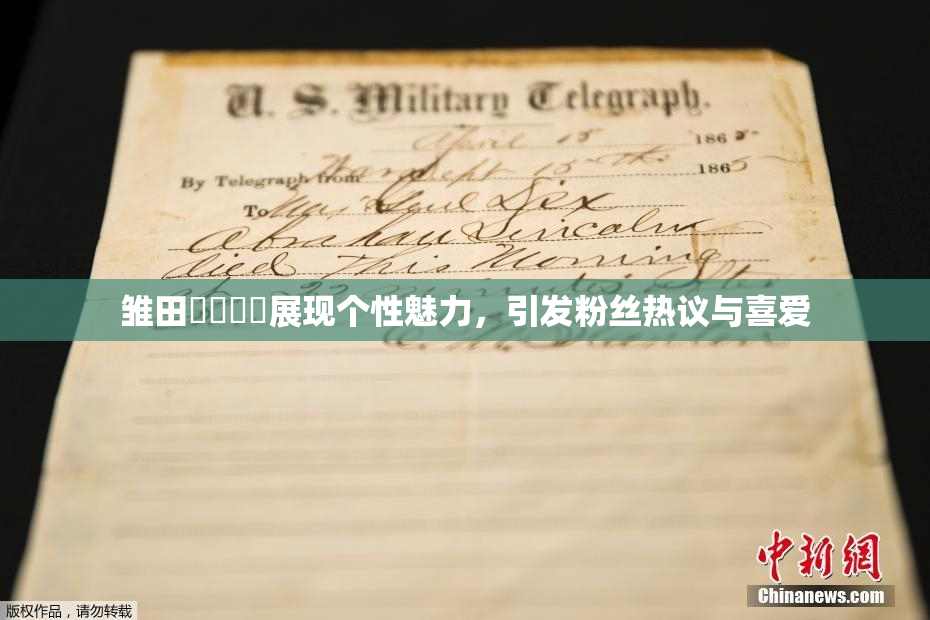 U. S. Military Telegraph.
April 15 1865
By Telegraph from War Dept 15th 1865
To Maj Genl Dix
Abraham Lincoln
died This Morning
22 minutes after
雏田▯▯▯▯展现个性魅力，引发粉丝热议与喜爱
E. M. Stanton
中新网
Chinanews.com
版权作品，请勿转载